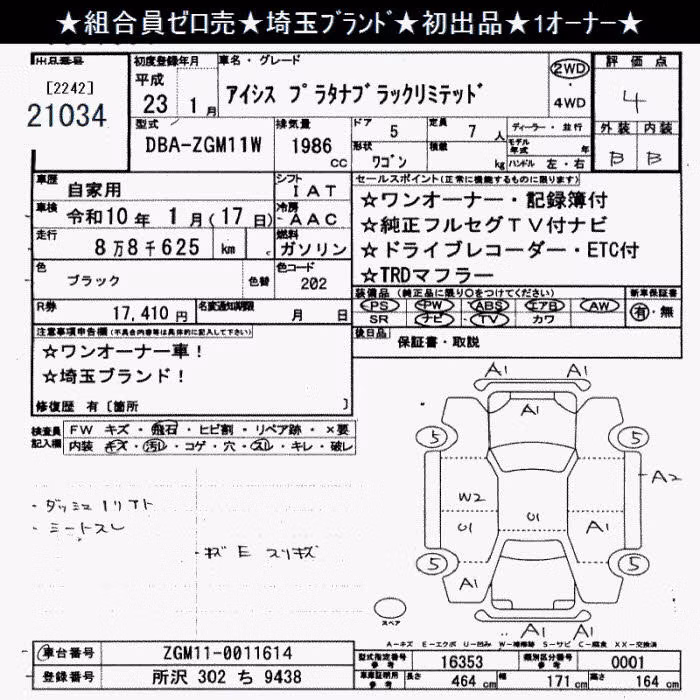 ★組合員ゼロ売★埼玉ﾌﾞﾗﾝﾄﾞ★初出品★1ｵｰﾅｰ★
出品番号
[2242]
21034
初度登録年月
平成
23 1 月
車名・グレード
アイシス プラタナブラックリミテッド
2WD
・
4WD
評価点
4
外装 内装
B B
型式
DBA-ZGM11W
排気量
1986
cc
ドア
5
定員
7 人
形状
ワゴン
積載
kg
ディーラー・並行
モデル年式 年
ハンドル 左・右
車歴
自家用
シフト
IAT
車検
令和10年 1月(17日)
冷房
AAC
走行
8万8千625 km
燃料
ガソリン
色
ブラック
色替
色コード
202
R券
17,410 円
名変通知期限
月 日
セールスポイント(正常に機能するものに限ります)
☆ワンオーナー・記録簿付
☆純正フルセグTV付ナビ
☆ドライブレコーダー・ETC付
☆TRDマフラー
装備品 (純正品に限り○をつけてください)
PS PW ABS エアB AW
SR ナビ TV カワ
新車保証書
有・無
後日品
保証書・取説
注意事項申告欄(不具合内容等は具体的に記入して下さい)
☆ワンオーナー車!
☆埼玉ブランド!
修復歴 有〔箇所 〕
検査員記入欄
FW キズ・飛石・ヒビ割・リペア跡・×要
内装 キズ・汚レ・コゲ・穴・スレ・キレ・破レ
・ダッシュ1リフト
・シートスレ
・キズ E スリキズ
A1 A1
A1
5 5
A2
W2
U1 U1 A1
5 5
A1
A1 A1
スペア
A-キズ E-エクボ U-凹み W-補修跡 S-サビ C-腐食 XX-交換済
車台番号
ZGM11-0011614
登録番号
所沢 302 ち 9438
型式指定番号
参考
16353
類別区分番号
参考
0001
車庫証明用
参考
長さ
464 cm
幅
171 cm
高さ
164 cm